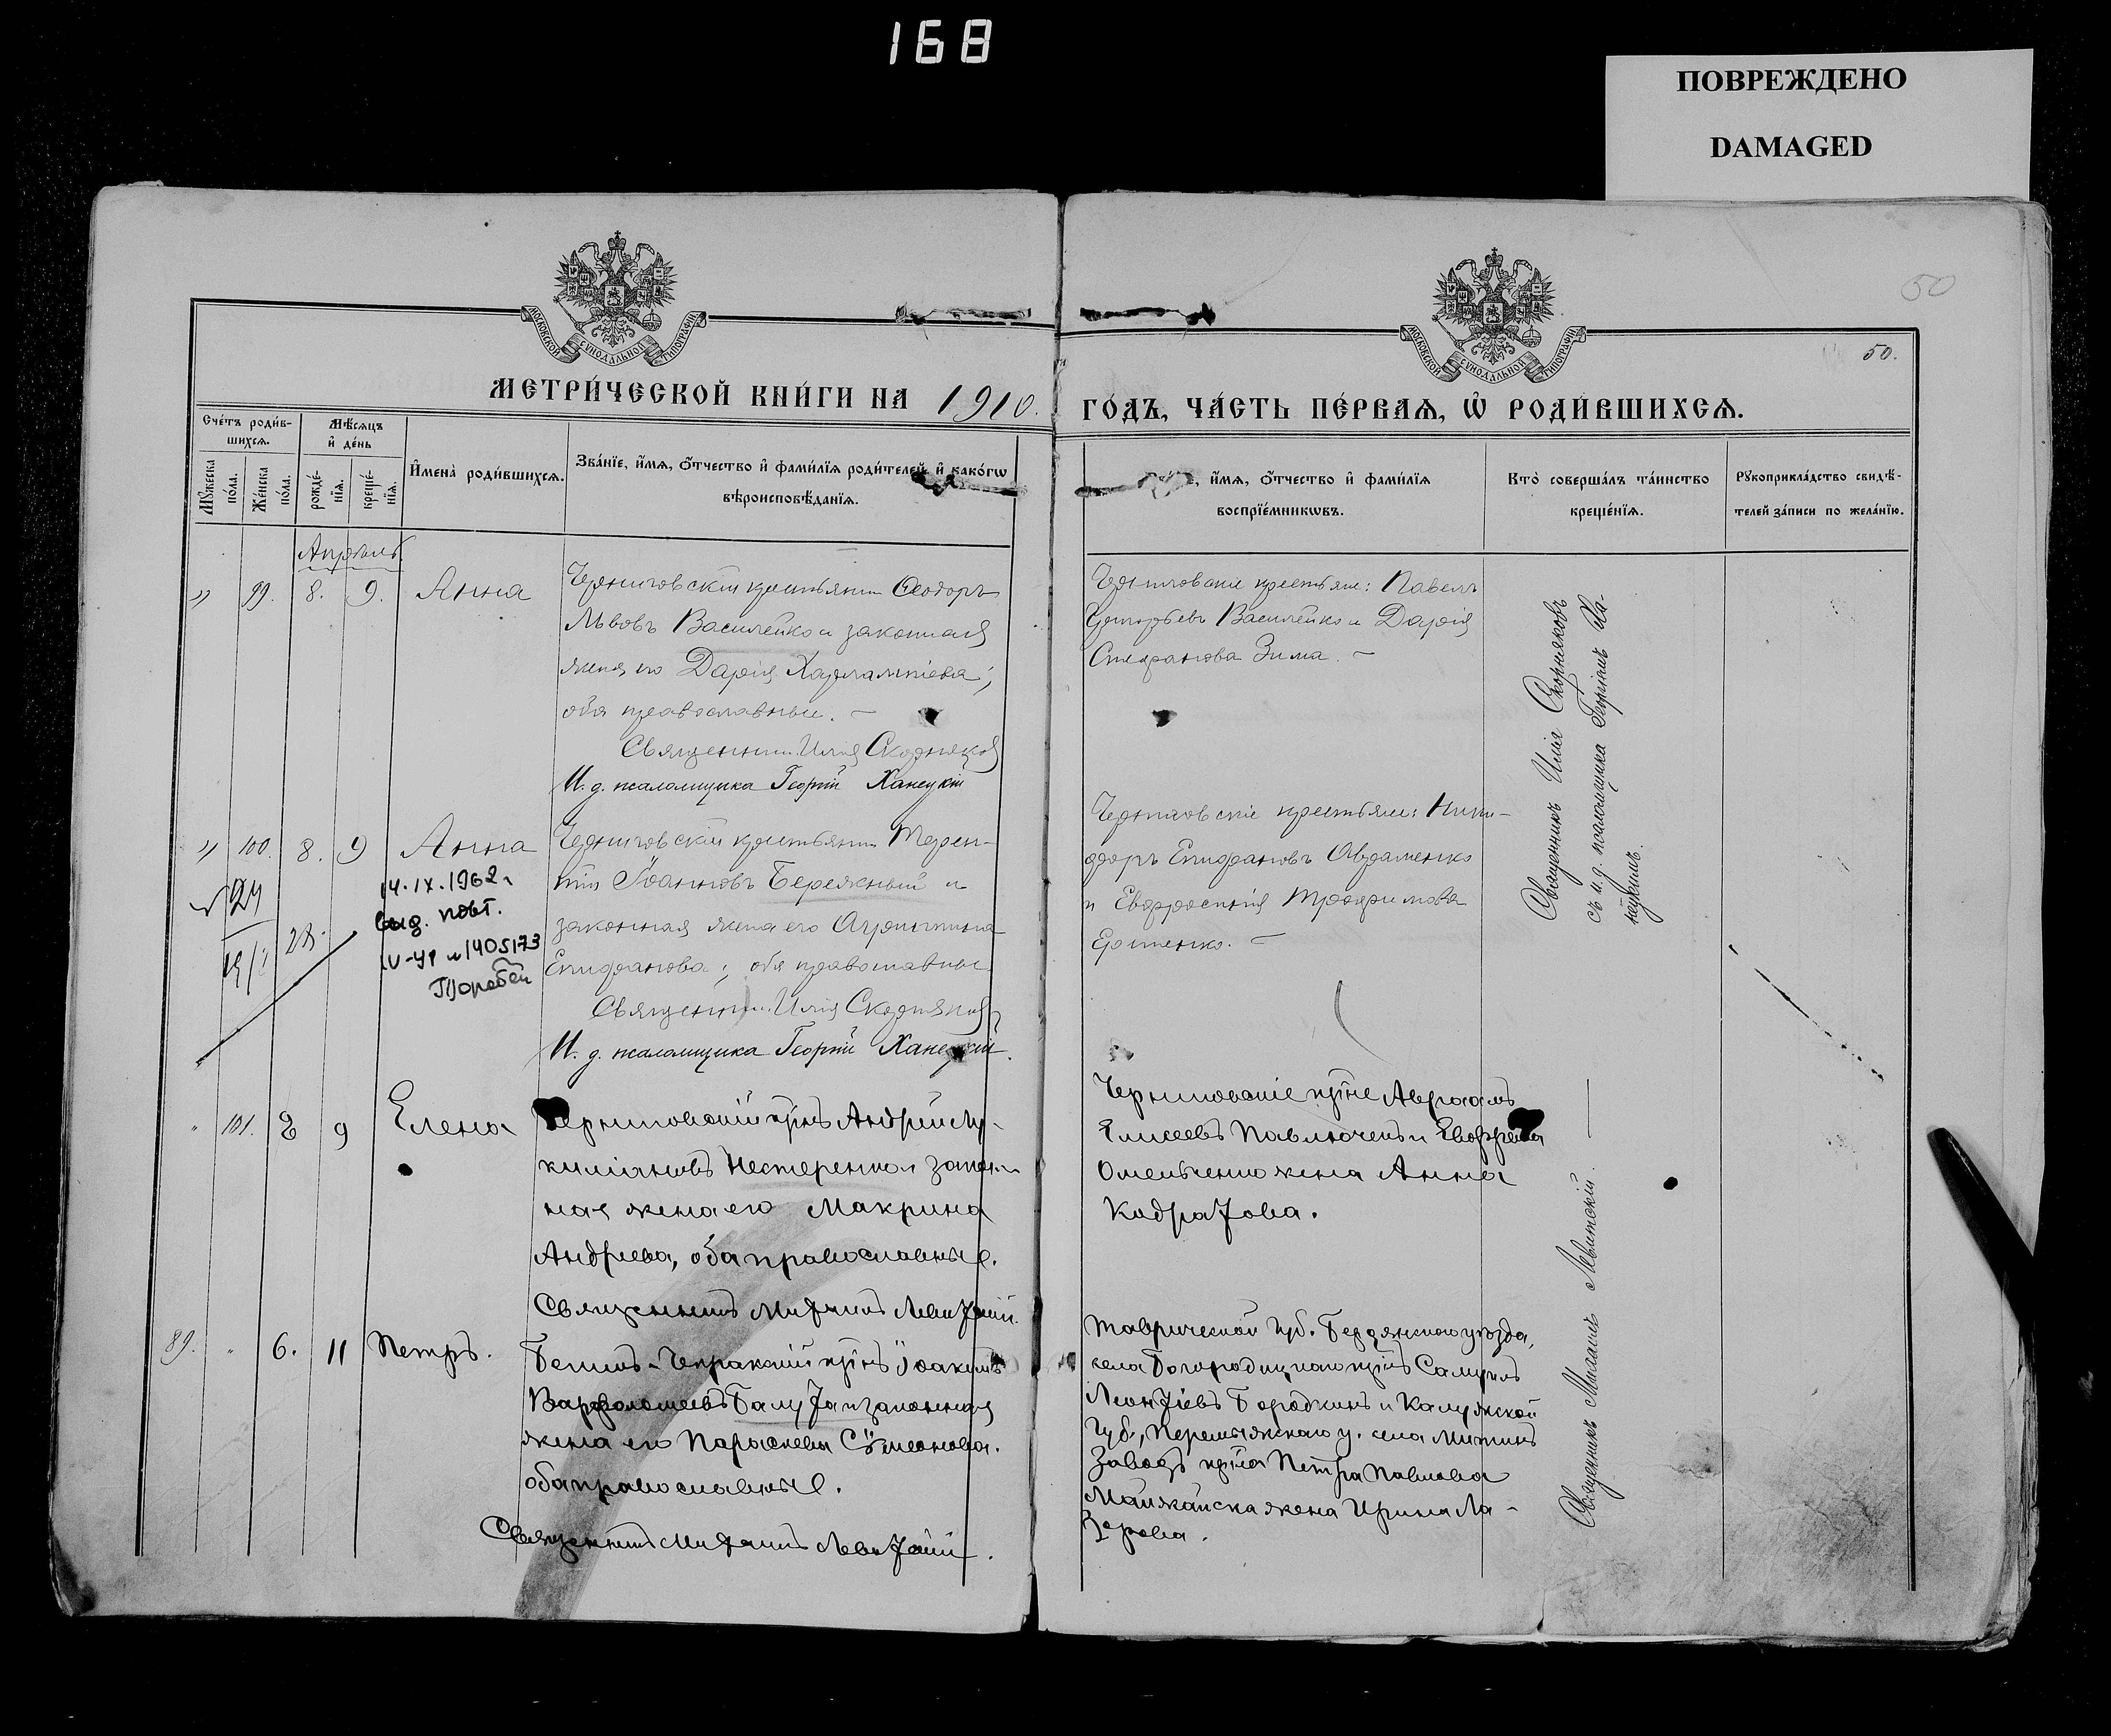 168
ПОВРЕЖДЕНО
DAMAGED
50
50.
МОСКОВСКОЙ СѴНОДАЛЬНОЙ ТИПОГРАФІИ
МОСКОВСКОЙ СѴНОДАЛЬНОЙ ТИПОГРАФІИ
МЕТРИ́ЧЕСКОЙ КНИ́ГИ НА 1910.
ГО́ДЪ, ЧА́СТЬ ПЕ́РВАѦ, Ѡ҆ РОДИ́ВШИХСѦ.
Сче́тъ роди́в-
шихсѧ.
Мѣ́сѧцъ
и҆ де́нь
Мꙋ́жеска
по́ла.
Же́нска
по́ла.
рожде́-
нїѧ.
креще́-
нїѧ.
И҆мена̀ роди́вшихсѧ.
Зва́нїе, и҆́мѧ, ѻ҆́тчество и҆ фами́лїѧ роди́телей, и҆ како́гѡ
вѣроисповѣ́данїѧ.
и҆́мѧ, ѻ҆́тчество и҆ фами́лїѧ
воспрїе́мникѡвъ.
Кто̀ соверша́лъ та́инство
креще́нїѧ.
Рꙋкоприкла́дство свидѣ́-
телей за́писи по жела́нїю.
Апрѣль
" 99. 8. 9. Анна
Черниговскій крестьянин Ѳеодоръ
Львовъ Василейко и законная
жена его Дарія Харлампіева;
оба православные. —
Священник Илія Скорняков
И. д. псаломщика Георгій Ханецкій
Черниговскіе крестьяне: Павелъ
Григорьевъ Василейко и Дарія
Стефанова Зима. —
Священникъ Илія Скорняковъ
съ и.д. псаломщика Георгіемъ Ха-
нецкимъ.
" 100. 8. 9 Анна
14.IX.1962г.
выд. повт.
IV-УР № 1405173
Черниговскій крестьянин Терен-
тій Іоанновъ Бережный и
законная жена его Агриппина
Епифанова; оба православные
Священник Илія Скорняков
И. д. псаломщика Георгій Ханецкій.
24
28.
Черниговскіе крестьяне: Ники-
форъ Епифановъ Авраменко
и Евфросинія Трофимова
" 101. 8 9 Елена
Черниговскій крнъ Андрей Лу-
киліановъ Нестеренко и закон-
ная жена его Макрина
Андреева, оба православные.
Священникъ Михаилъ Левитскій.
Черниговскіе крне Авраамъ
Елисеевъ Павлюченъ и
Омельченко жена Анна
Кодратова.
Священникъ Михаилъ Левитскій. —
89. " 6. 11 Петръ.
крнъ Іоакимъ
Варфоломеевъ Балута и законная
жена его Параскева Сѵмеонова.
оба православные.
Священникъ Михаилъ Левитскій.
Таврической губ. Бердянскаго уѣзда,
села Богородицкаго крнъ Самуилъ
Леонтіевъ Бородкинъ и Калужской
губ., Перемышльскаго у. села Митинъ
Заводъ крна Петра Павлова
жена Ирина Ла-
зарева.